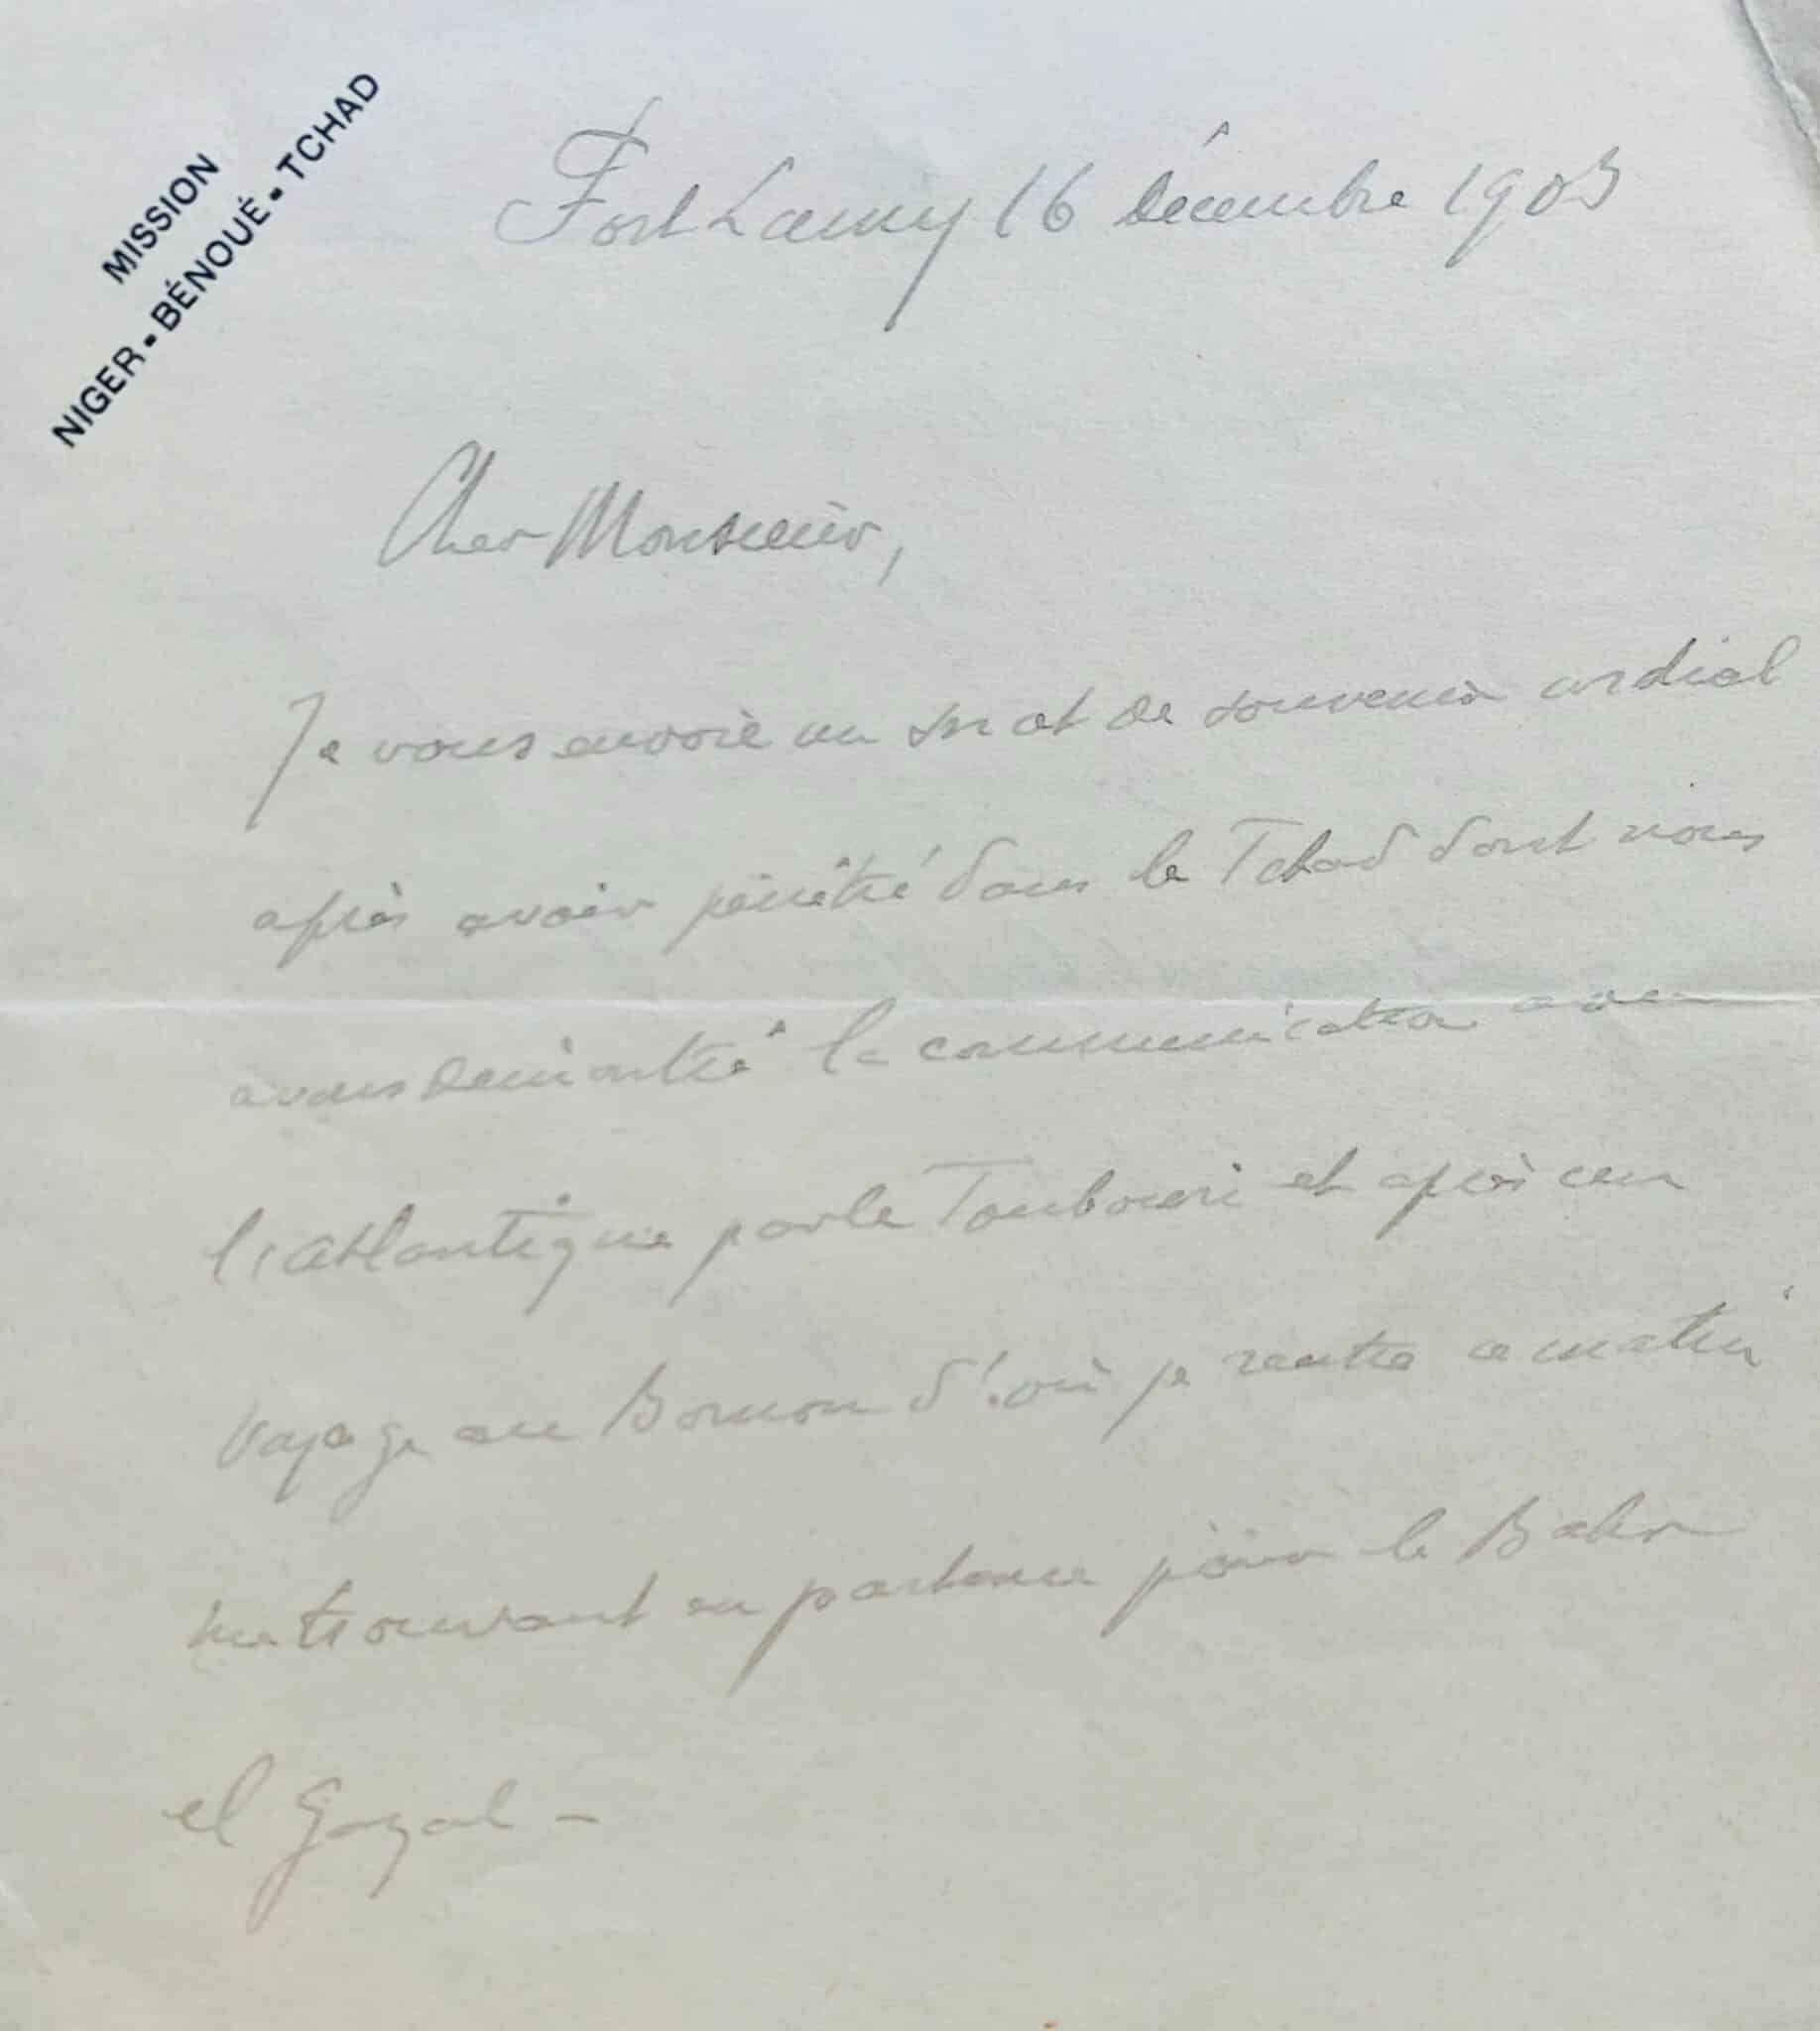 MISSION
NIGER - BÉNOUÉ - TCHAD
Fort Lamy 16 décembre 1903
Cher Monsieur,
Je vous envoie un mot de souvenir cordial
après avoir pénétré dans le Tchad dont nous
avons démontré la communication avec
l'atlantique par le Toubouri et après un
voyage au Bornou d'où je rentre ce matin
me trouvant en partance pour le Bahr
el Gazal -